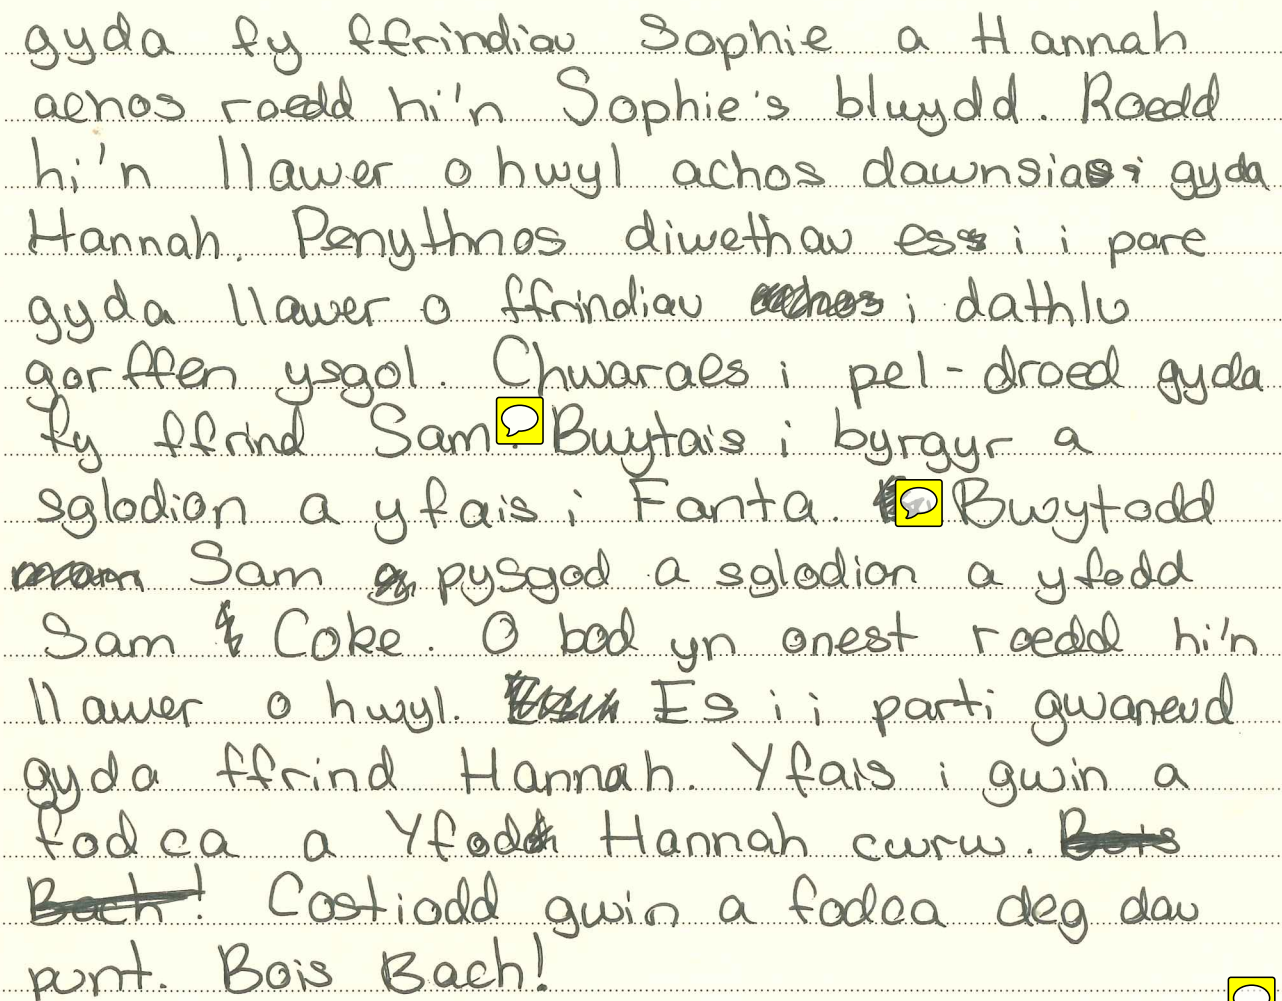 gyda fy ffrindiau Sophie a Hannah
achos roedd hi'n Sophie's blwydd. Roedd
hi'n llawer o hwyl achos dawnsiais i gyda
Hannah. Penythnos diwethau es i i parc
gyda llawer o ffrindiau i dathlu
gorffen ysgol. Chwaraes i pel-droed gyda
fy ffrind Sam. Bwytais i byrgyr a
sglodion a yfais i Fanta. Bwytodd
Sam pysgod a sglodion a yfodd
Sam Coke. O bod yn onest roedd hi'n
llawer o hwyl. Es i i parti gwaneud
gyda ffrind Hannah. Yfais i gwin a
fodca a Yfodd Hannah cwrw. Bois
Bach! Costiodd gwin a fodca deg dau
punt. Bois Bach!